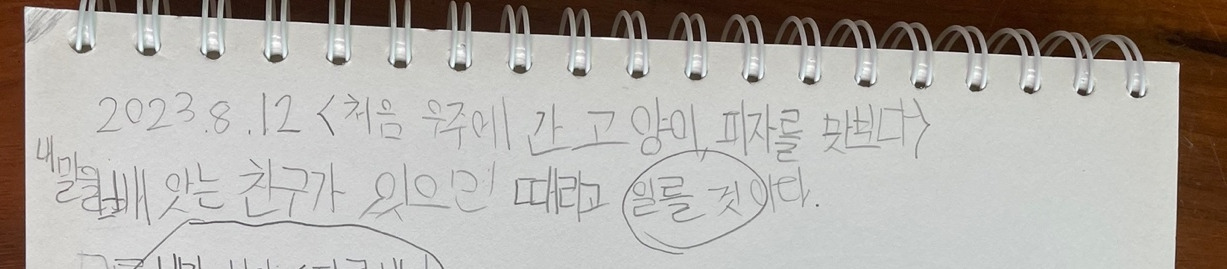 2023.8.12 <처음 우주에 간 고양이, 피자를 맛보다>
내 말을 빼앗는 친구가 있으면 때라고 일를 것이다.